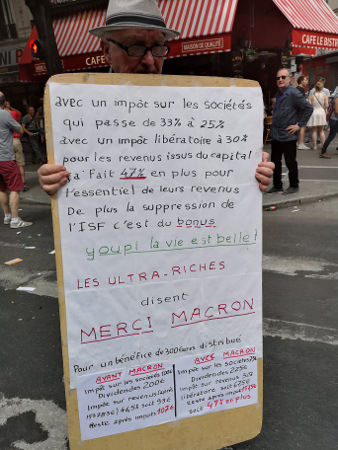 CAFE LE BISTR
CAFE LE B
MAISON DE QUALITÉ
avec un impôt sur les sociétés
qui passe de 33% à 25%
avec un impôt libératoire à 30%
pour les revenus issus du capital
ça fait 47% en plus pour
l'essentiel de leurs revenus
De plus la suppression de
l'ISF c'est du bonus
youpi la vie est belle!
LES ULTRA-RICHES
disent
MERCI MACRON
Pour un bénéfice de 300 euros distribué
AVANT MACRON
Impôt sur les sociétés 100€
Dividendes 200€
Impôt sur revenu
45% soit 93€
Reste après impôts 107€
AVEC MACRON
Impôt sur les sociétés 75€
Dividendes 225€
Impôt sur revenu
Libératoire soit 67.5€
Reste après impôts 157.5€
soit 47% en plus